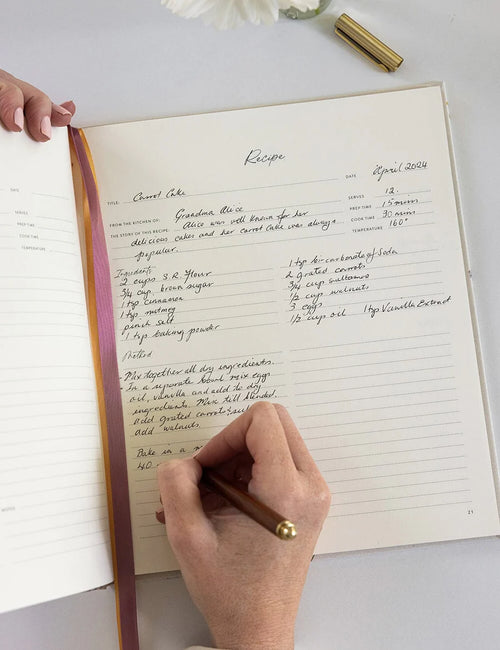 DATE
SERVES
PREP TIME
COOK TIME
TEMPERATURE
NOTES
Recipe
DATE April 2024
TITLE: Carrot Cake
SERVES 12
FROM THE KITCHEN OF: Grandma Alice
PREP TIME 15 mins
THE STORY OF THIS RECIPE: Alice was well known for her
COOK TIME 30 mins
delicious cakes and her carrot cake was always
TEMPERATURE 160°
popular.
Ingredients
2 cups S.R. Flour
3/4 cup brown sugar
1 tsp cinnamon
1 tsp nutmeg
pinch salt
1 tsp baking powder
1 tsp bicarbonate of Soda
2 grated carrots
3/4 cup sultanas
1/2 cup walnuts
3 eggs
1/2 cup oil 1 tsp Vanilla Extract
Method
- Mix together all dry ingredients.
In a separate bowl mix eggs
oil, vanilla and add to dry
ingredients. Mix till blended.
Add grated carrots &
add walnuts.
Bake in a
40
21